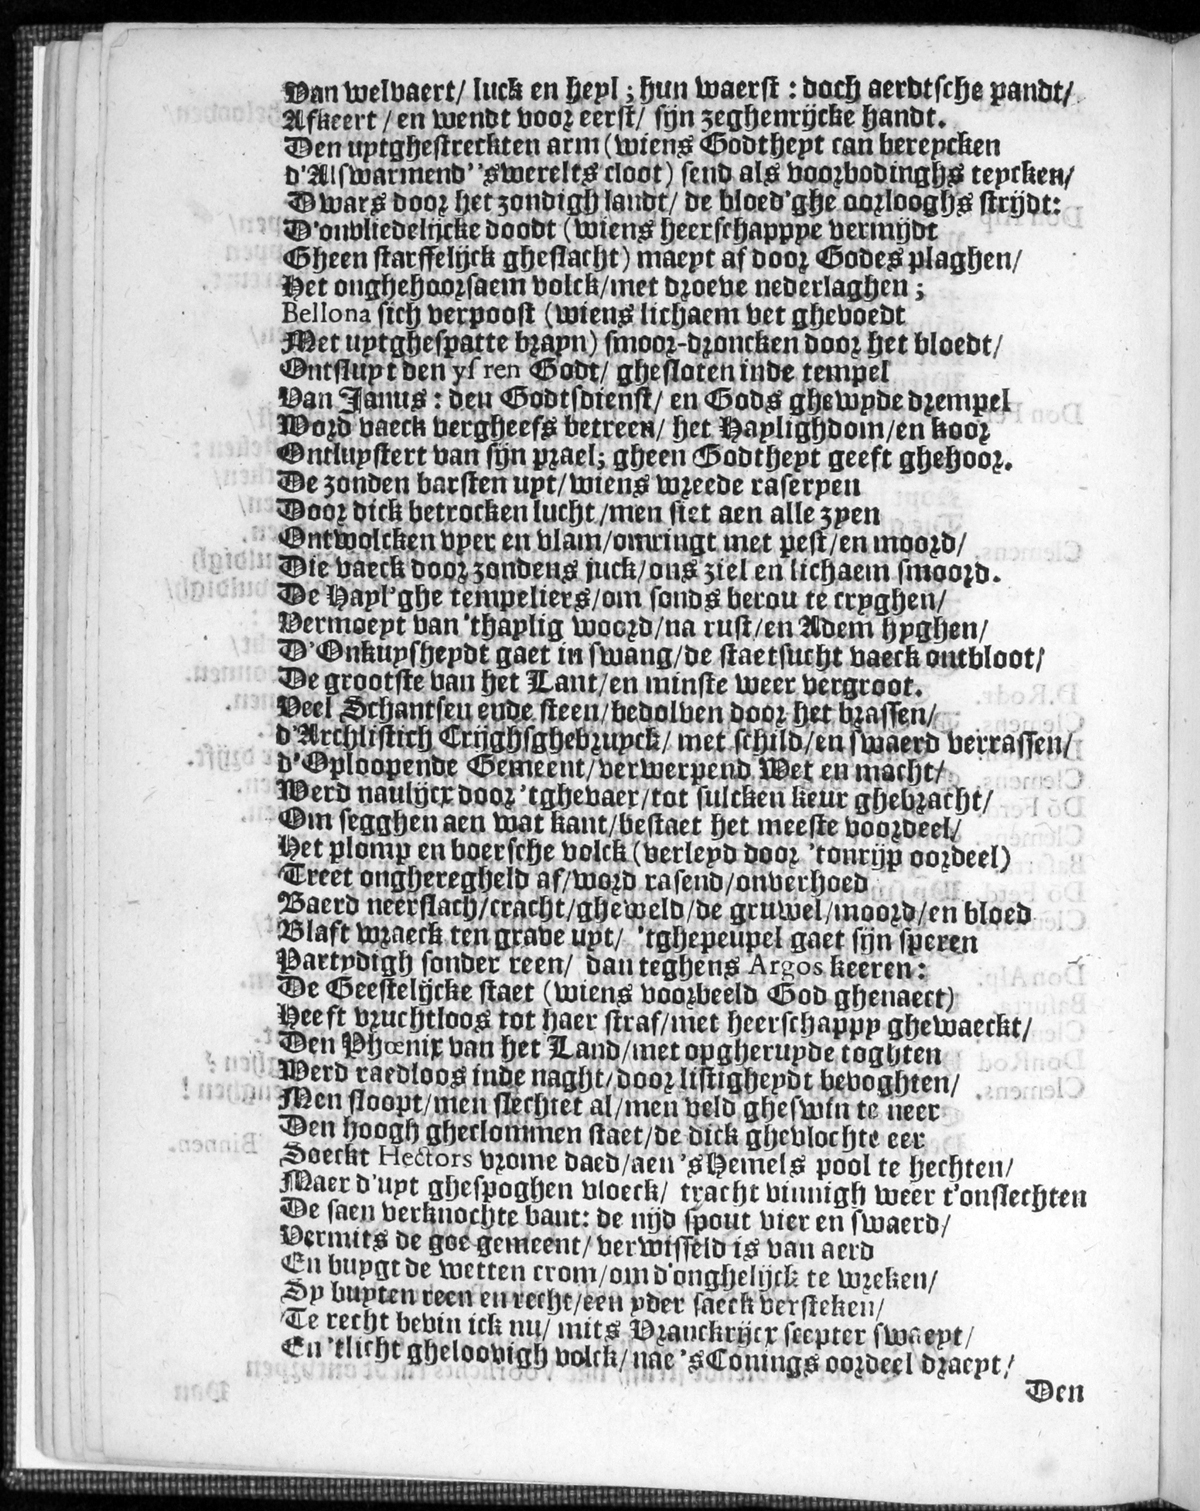 Van welvaert/ luck en heyl; hun waerst: doch aerdtsche pandt/
Afkeert/ en wendt voor eerst/ sijn zeghenrijcke handt.
Den uytghestreckten arm (wiens Godtheyt can bereycken
d'Alswarmend''swerelts cloot) send als voorbodinghs teycken/
Dwars door het zondigh landt/ de bloed'ghe oorlooghs strijdt:
D'onvliedelijcke doodt (wiens heerschapppe vermijdt
Gheen starffelijck gheslacht) maeyt af door Godes plaghen/
Het onghehoorsaem volck/met droeve nederlaghen;
Bellona sich verpoost (wiens lichaem vet ghevoedt
Met uytghespatte brayn) smoor-droncken door het bloedt/
Ontslupt den ysren Godt/ ghesloten inde tempel
Van Janus: den Godtsdienst/ en Gods ghewyde drempel
Word vaeck vergheefs betreen/ het Haylighdom/en koor
Ontluystert van sijn prael; gheen Godtheyt geeft ghehoor.
De zonden barsten uyt/wiens wreede raseryen
Door dick betrocken lucht/men siet aen alle zyen
Ontwolcken vyer en vlam/omringt met pest/en moord/
Die vaeck door zondens juck/ons ziel en lichaem smoord.
De Hayl'ghe tempeliers/om sonds berou te cryghen/
Vermoeyt van 'thaylig woord/na rust/en Adem hyghen/
D'Onkuysheydt gaet in swang/de staetsucht vaeck ontbloot/
De grootste van het Lant/en minste weer vergroot.
Veel Schantsen ende steen/bedolven door het brassen/
d'Archlistich Crijghsghebruyck/ met schild/en swaerd verrassen/
d'Oploopende Gemeent/verwerpend Wet en macht/
Werd naulijcx door 'tghevaer/tot sulcken keur ghebracht/
Om segghen aen wat kant/bestaet het meeste voordeel/
Het plomp en boersche volck (verleyd door 'tonrijp oordeel)
Treet ongheregheld af/word rasend/onverhoed
Baerd neerslach/cracht/gheweld/de gruwel/moord/en bloed
Blaft wraeck ten grave uyt/ 'tghepeupel gaet sijn speren
Partydigh sonder reen/ dan teghens Argos keeren:
De Geestelijcke staet (wiens voorbeeld God ghenaect)
Heeft vruchtloos tot haer straf/met heerschappy ghewaeckt/
Den Phœnix van het Land/met opgheruyde toghten
Werd raedloos inde naght/door listigheydt bevoghten/
Men sloopt/men slechtet al/men veld gheswin te neer
Den hoogh gheclommen staet/de dick ghevlochte eer
Soeckt Hectors vrome daed/aen 'sHemels pool te hechten/
Maer d'uyt ghespoghen vloeck/ tracht vinnigh weer t'onslechten
De saen verknochte bant: de nijd spout vier en swaerd/
Vermits de goe gemeent/ verwisseld is van aerd
En buygt de wetten crom/om d'onghelijck te wreken/
Sy buyten reen en recht/een yder saeck versteken/
Te recht bevin ick nu/ mits Vranckrijcx scepter swaeyt/
En 'tlicht gheloovigh volck/ nae 'sConings oordeel draeyt/
Den